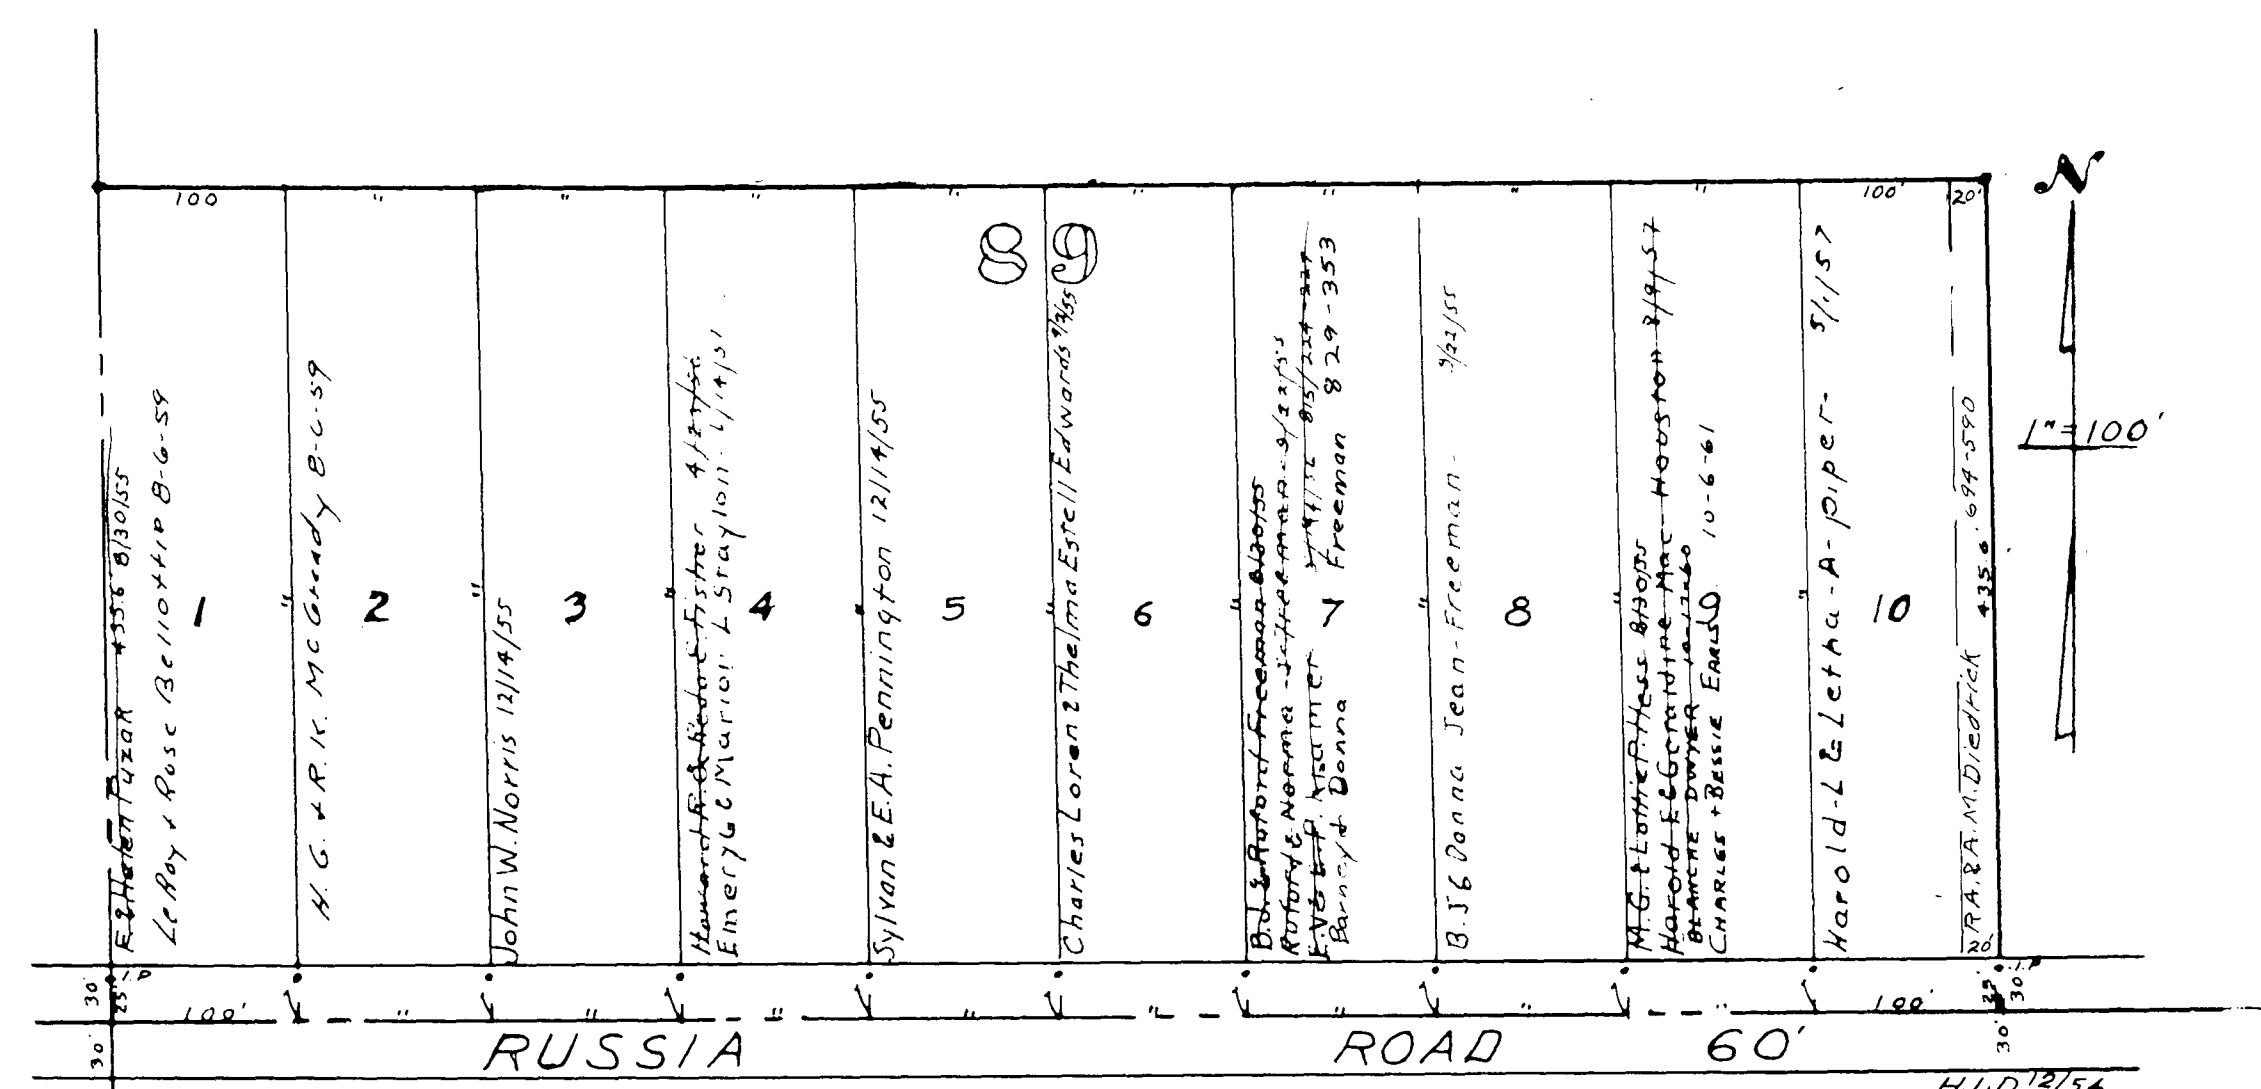 N
100 " " " " " " " " 100' 20'
89
1"=100'
E & Helen Puzar 435.6 8/30/55
LeRoy + Rose Bellottie 8-6-59
1
"
H. G. + R. K. McGready 8-6-59
2
"
John W. Norris 12/14/55
3
"
Fisher
Emery G & Marion L
4
"
Sylvan & E. A. Pennington 12/14/55
5
"
Charles Loren & Thelma Estell Edwards 9/2/55
6
"
B. J. & Ruford Freeman 8/30/55
Ruford & Norma 9/22/55
Barney + Donna Freeman 829-353
7
"
B. J & Donna Jean-Freeman- 9/22/55
8
"
M. G. & Lottie P. Hess 8/30/55
Harold E & Geraldine Mae-Houston 8/9/57
BLANCHE DWYER
CHARLES + BESSIE EARLS 10-6-61
9
"
Harold-L & Letha-A-Piper- 5/1/57
10
R.A. & A.M. Diedrick 694-590
435.6
20'
I.P. I.P
30' 25' 25' 30'
100' " " " " " " " " 100'
30' RUSSIA ROAD 60' 30'
H.L.D 12/54